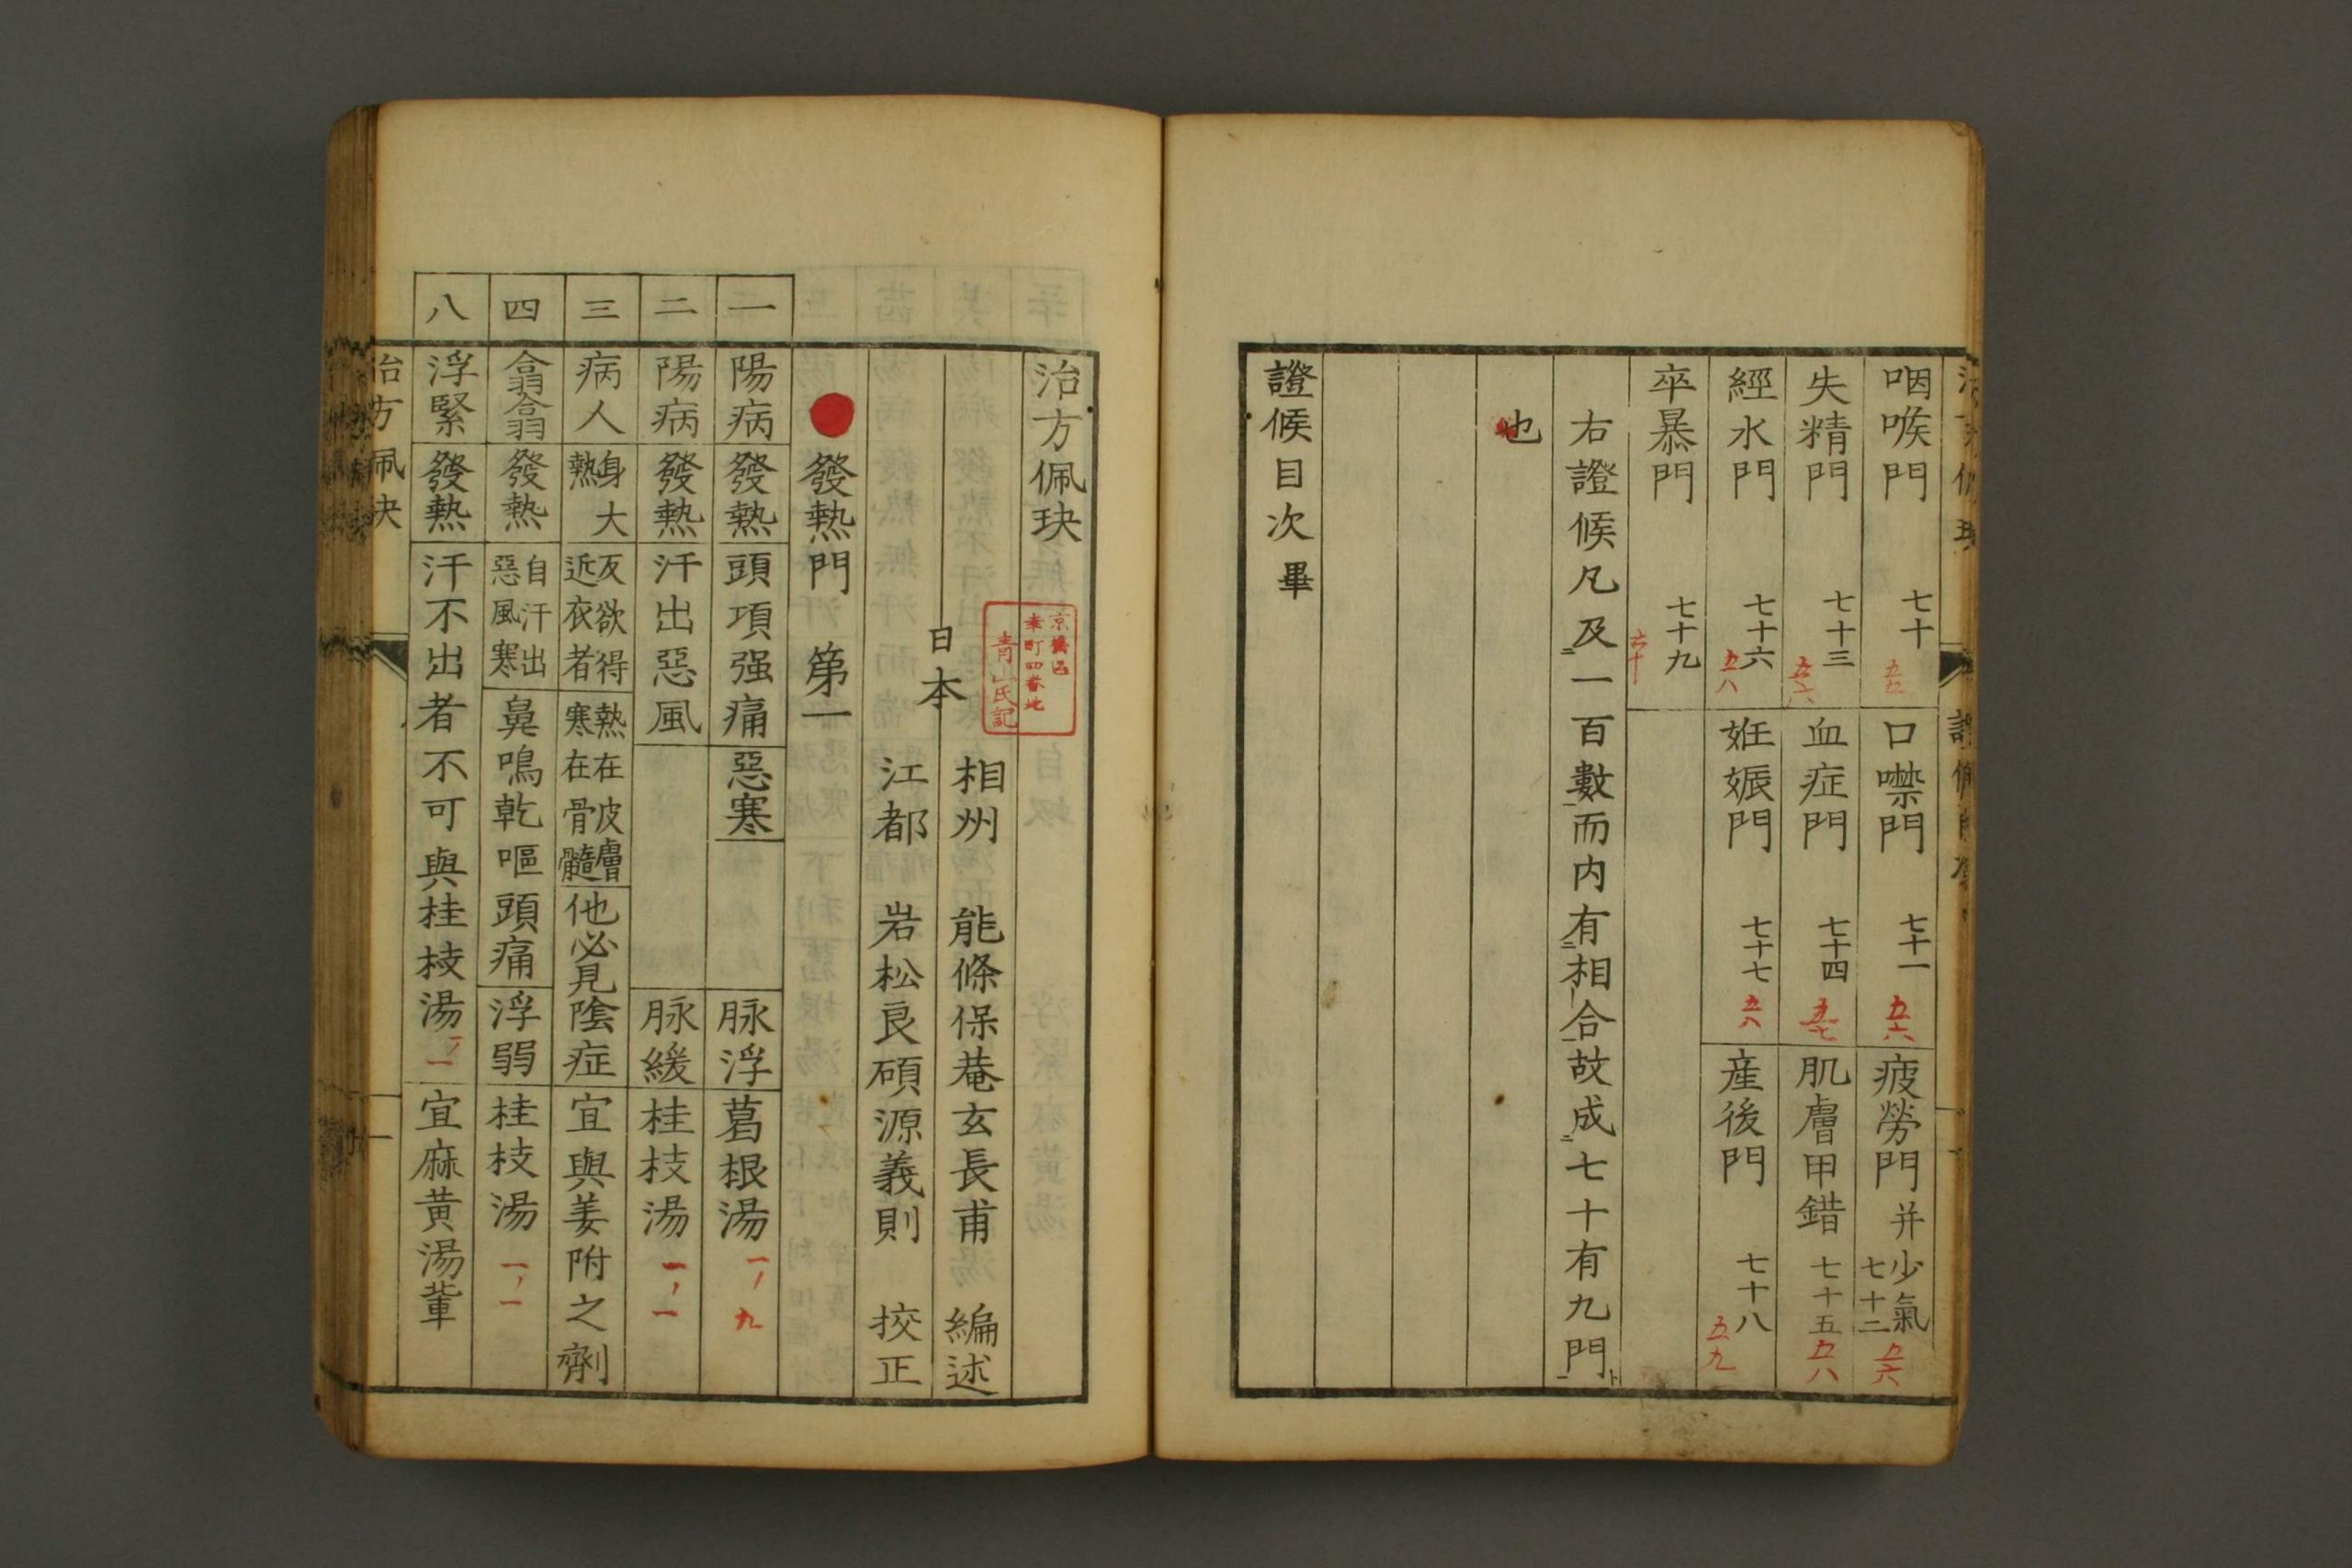 咽喉門 七十 五五
口噤門 七十一 五六
疲勞門 并少氣 七十二 五六
失精門 七十三 五六
血症門 七十四 五七
肌膚甲錯 七十五 五八
經水門 七十六 五八
姙娠門 七十七 五八
産後門 七十八 五九
卒暴門 七十九 六十
右證候凡及一百數而内有相合故成七十有九門
也
證候目次畢
治方佩玦
京橋區
幸町四番地
青山氏記
日本
相州 能條保菴玄長甫 編述
江都 岩松良碩源義則 挍正
發熱門 第一
一 陽病 發熱 頭項强痛 惡寒 脉浮 葛根湯 一ノ九
二 陽病 發熱 汗出惡風 脉緩 桂枝湯 一ノ一
三 病人 身大熱 反欲得近衣者 熱在皮膚寒在骨髓 他必見陰症 宜與姜附之劑
四 翕翕 發熱 自汗出惡風寒 鼻鳴乾嘔頭痛 浮弱 桂枝湯 一ノ一
八 浮緊 發熱 汗不出者不可與桂枝湯 一ノ一 宜麻黄湯軰
治方佩玦